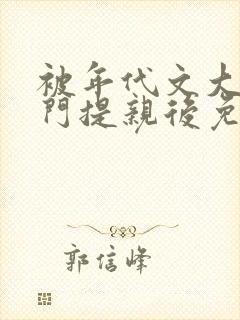 被年代文大
門提親後免
郭信峰